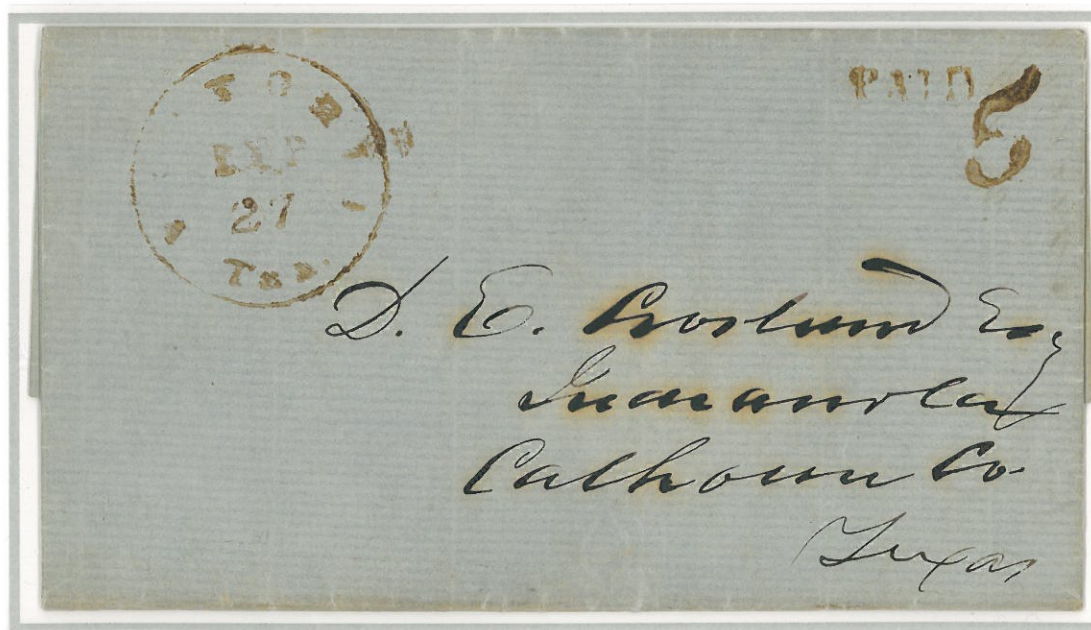 27
Tex.
PAID
5
D. E. Crosland Esq
Indianola
Calhoun Co.
Texas